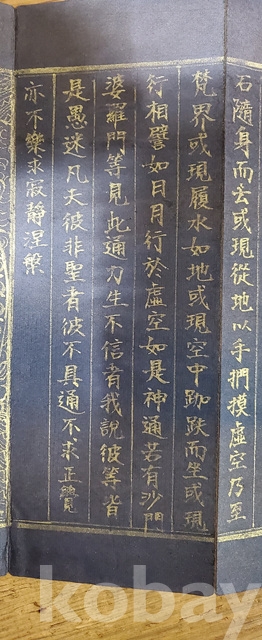 石隨身而去或現從地以手捫摸虛空乃至
梵界或現履水如地或現空中跏趺而坐或現
行相譬如日月行於虛空如是神通若有沙門
婆羅門等見此通力生不信者我說彼等皆
是愚迷凡夫彼非聖者彼不具通不求正覺
亦不樂求寂靜涅槃
kobay